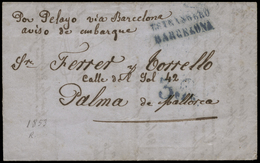 Por Pelayo via Barcelona
aviso de embarque
ESTRANGERO
BARCELONA
Sres Ferrer y Torrello
Calle del Sol 42
Palma de Mallorca
1853